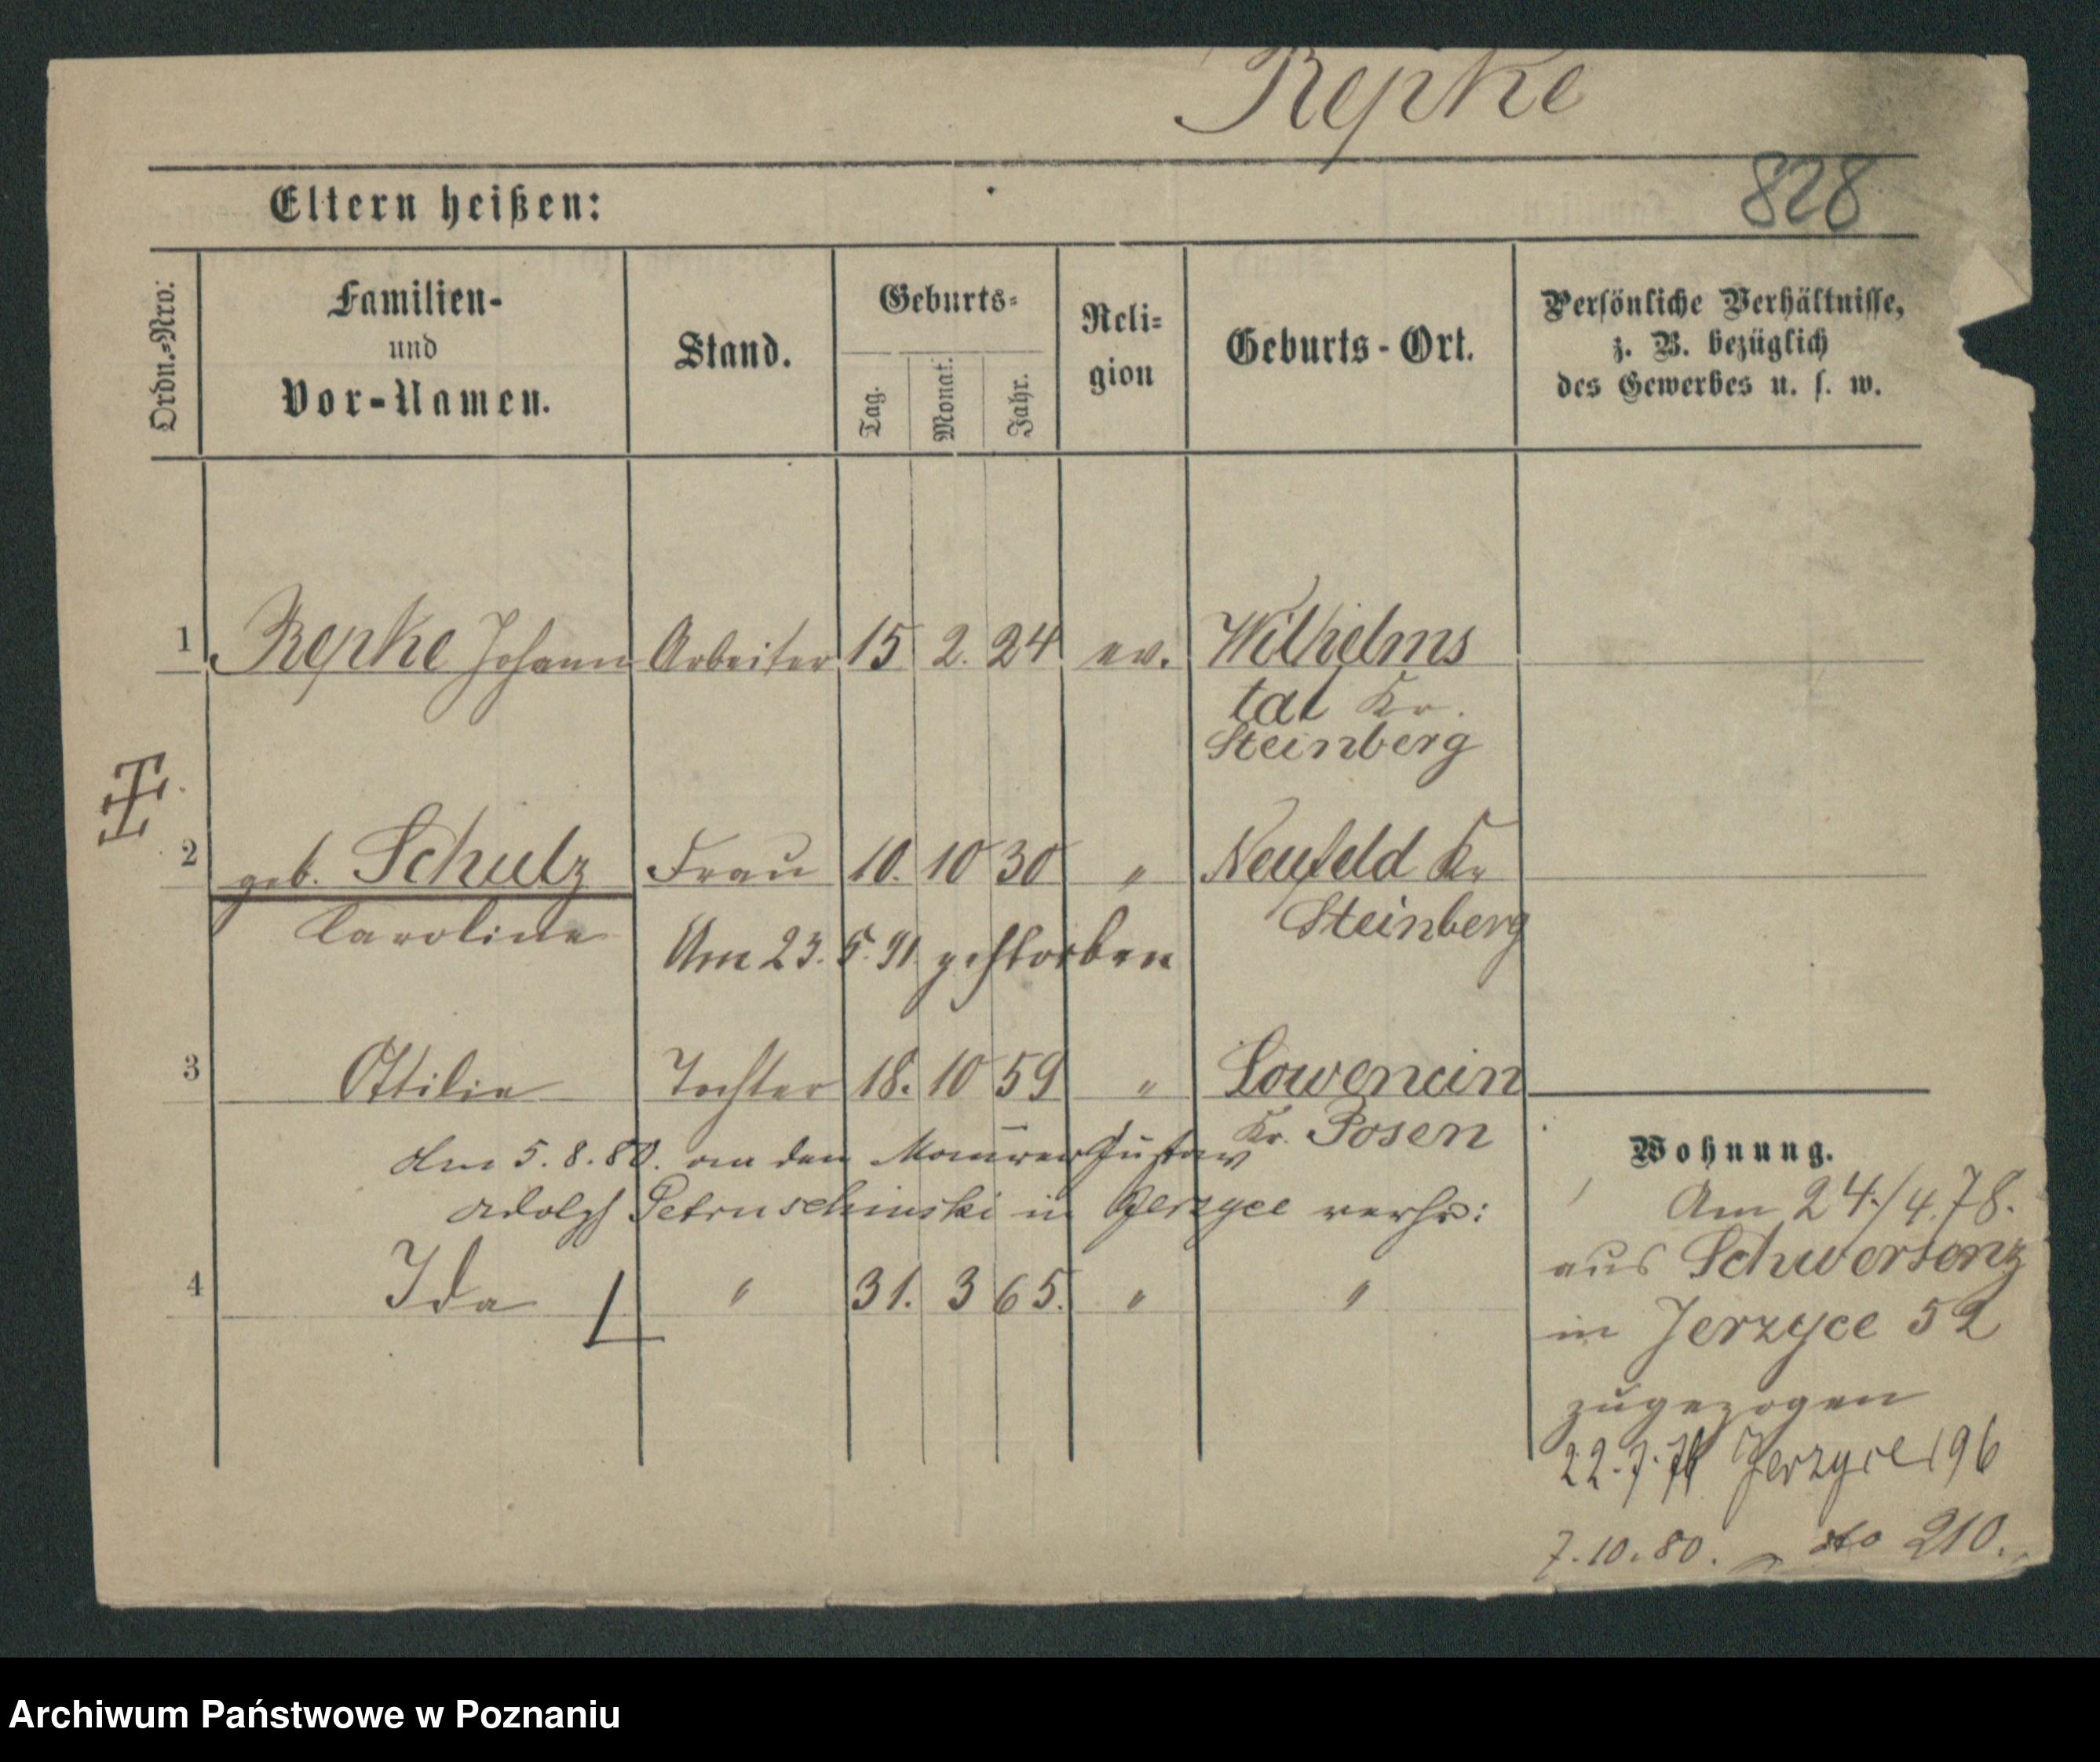 Repke
828
Eltern heißen:
Ordn.-Nro.
Familien-
und
Vor-Namen.
Stand.
Geburts-
Tag.
Monat.
Jahr.
Reli-
gion
Geburts-Ort.
Persönliche Verhältnisse,
z. B. bezüglich
des Gewerbes u. s. w.
1 Repke Johann Arbeiter 15 2. 24 ev. Wilhelms
tal Kr.
Steinberg
2 geb. Schulz Frau 10. 10 30 " Neufeld Kr
Caroline Steinberg
Am 23. 5. 91 gestorben
3 Ottilie Tochter 18. 10 59 " Lowencin
Kr. Posen
Am 5. 8. 80. an den Maurer Gustav
Adolph Petruschinski in Jerzyce verhr:
4 Ida " 31. 3 65. " "
Wohnung.
Am 24./4.78.
aus Schwersenz
in Jerzyce 52
zugezogen
22.7.78 Jerzyce 196
7.10.80. dto 210.
Archiwum Państwowe w Poznaniu